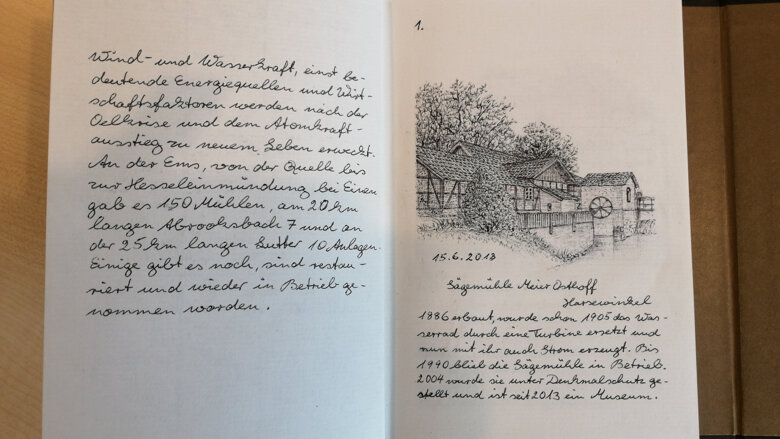 Wind- und Wasserkraft, einst be-
deutende Energiequellen und Wirt-
schaftsfaktoren werden nach der
Oelkrise und dem Atomkraft-
ausstieg zu neuem Leben erweckt.
An der Ems, von der Quelle bis
zur Hesseleinmündung bei Einen
gab es 150 Mühlen, am 20 km
langen Abrooksbach 7 und an
der 25 km langen Lutter 10 Anlagen.
Einige gibt es noch, sind restau-
riert und wieder in Betrieb ge-
nommen worden.
1.
15.6.2013
Sägemühle Meier Osthoff
Harsewinkel
1886 erbaut, wurde schon 1905 das Was-
serrad durch eine Turbine ersetzt und
nun mit ihr auch Strom erzeugt. Bis
1990 blieb die Sägemühle in Betrieb.
2004 wurde sie unter Denkmalschutz ge-
stellt und ist seit 2013 ein Museum.